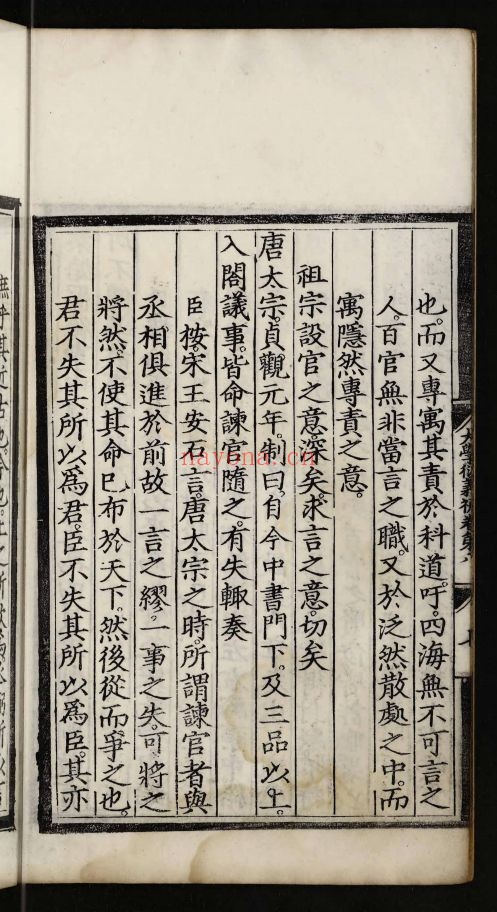 也而又專寓其責於科道吁四海無不可言之
人百官無非當言之職又於泛然散處之中而
寓隱然專責之意
祖宗設官之意深矣求言之意切矣
唐太宗貞觀元年制曰自今中書門下及三品以上
入閤議事皆命諫官隨之有失輒奏
臣按宋王安石言唐太宗之時所謂諫官者與
丞相俱進於前故一言之繆一事之失可將之
將然不使其命已布於天下然後從而爭之也
君不失其所以爲君臣不失其所以爲臣其亦
大學衍義補卷
七
nayona.cn